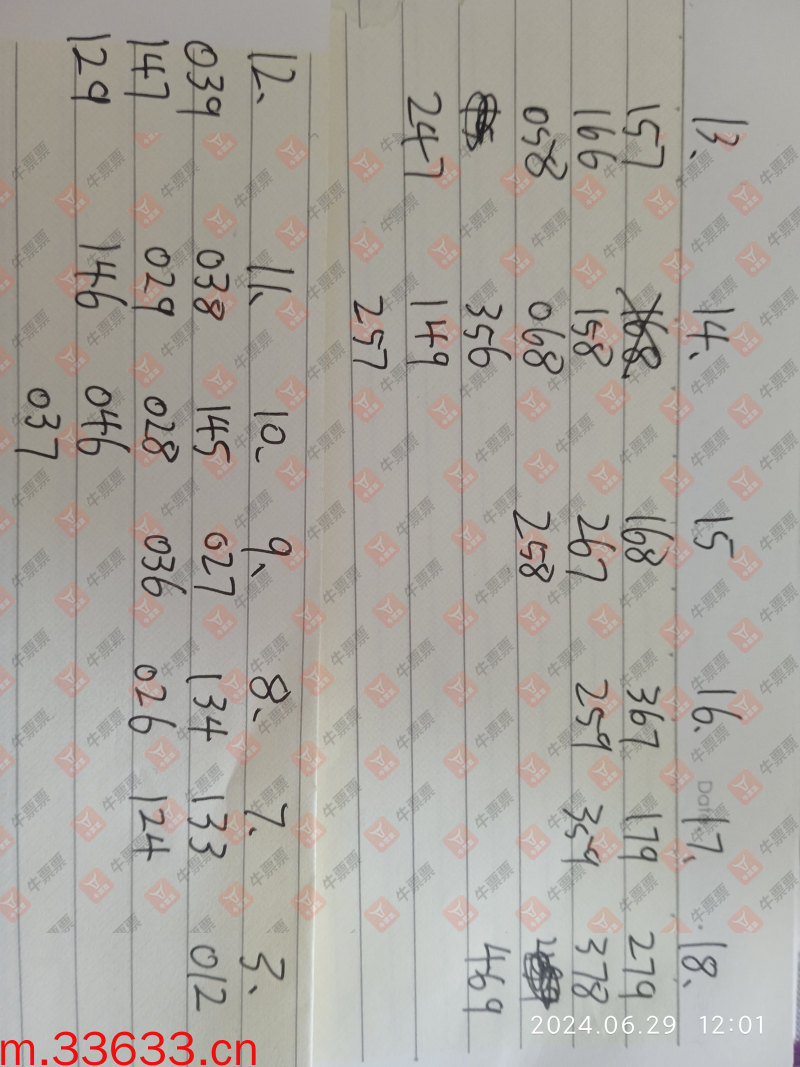 13. 14. 15 16. 17. 18.
157 168 168 367 179 279
166 158 267 259 359 378
058 068 258
356 469
247 149
257
12. 11. 10. 9. 8. 7. 3.
039 038 145 027 134 133 012
147 029 028 036 026 124
129 146 046
037
Date
牛票票
2024.06.29 12:01
m.33633.cn